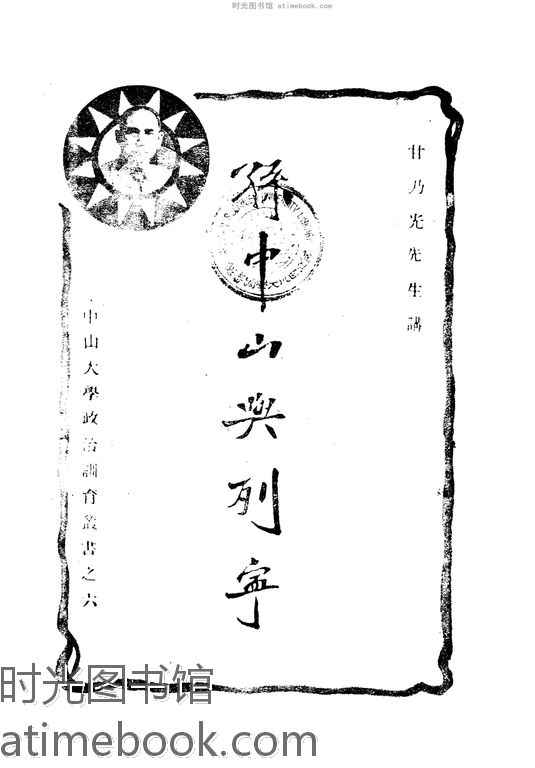 时光图书馆 atimebook.com
甘乃光先生講
孫中山與列寧
中山大學政治訓育叢書之六
时光图书馆
atimebook.com